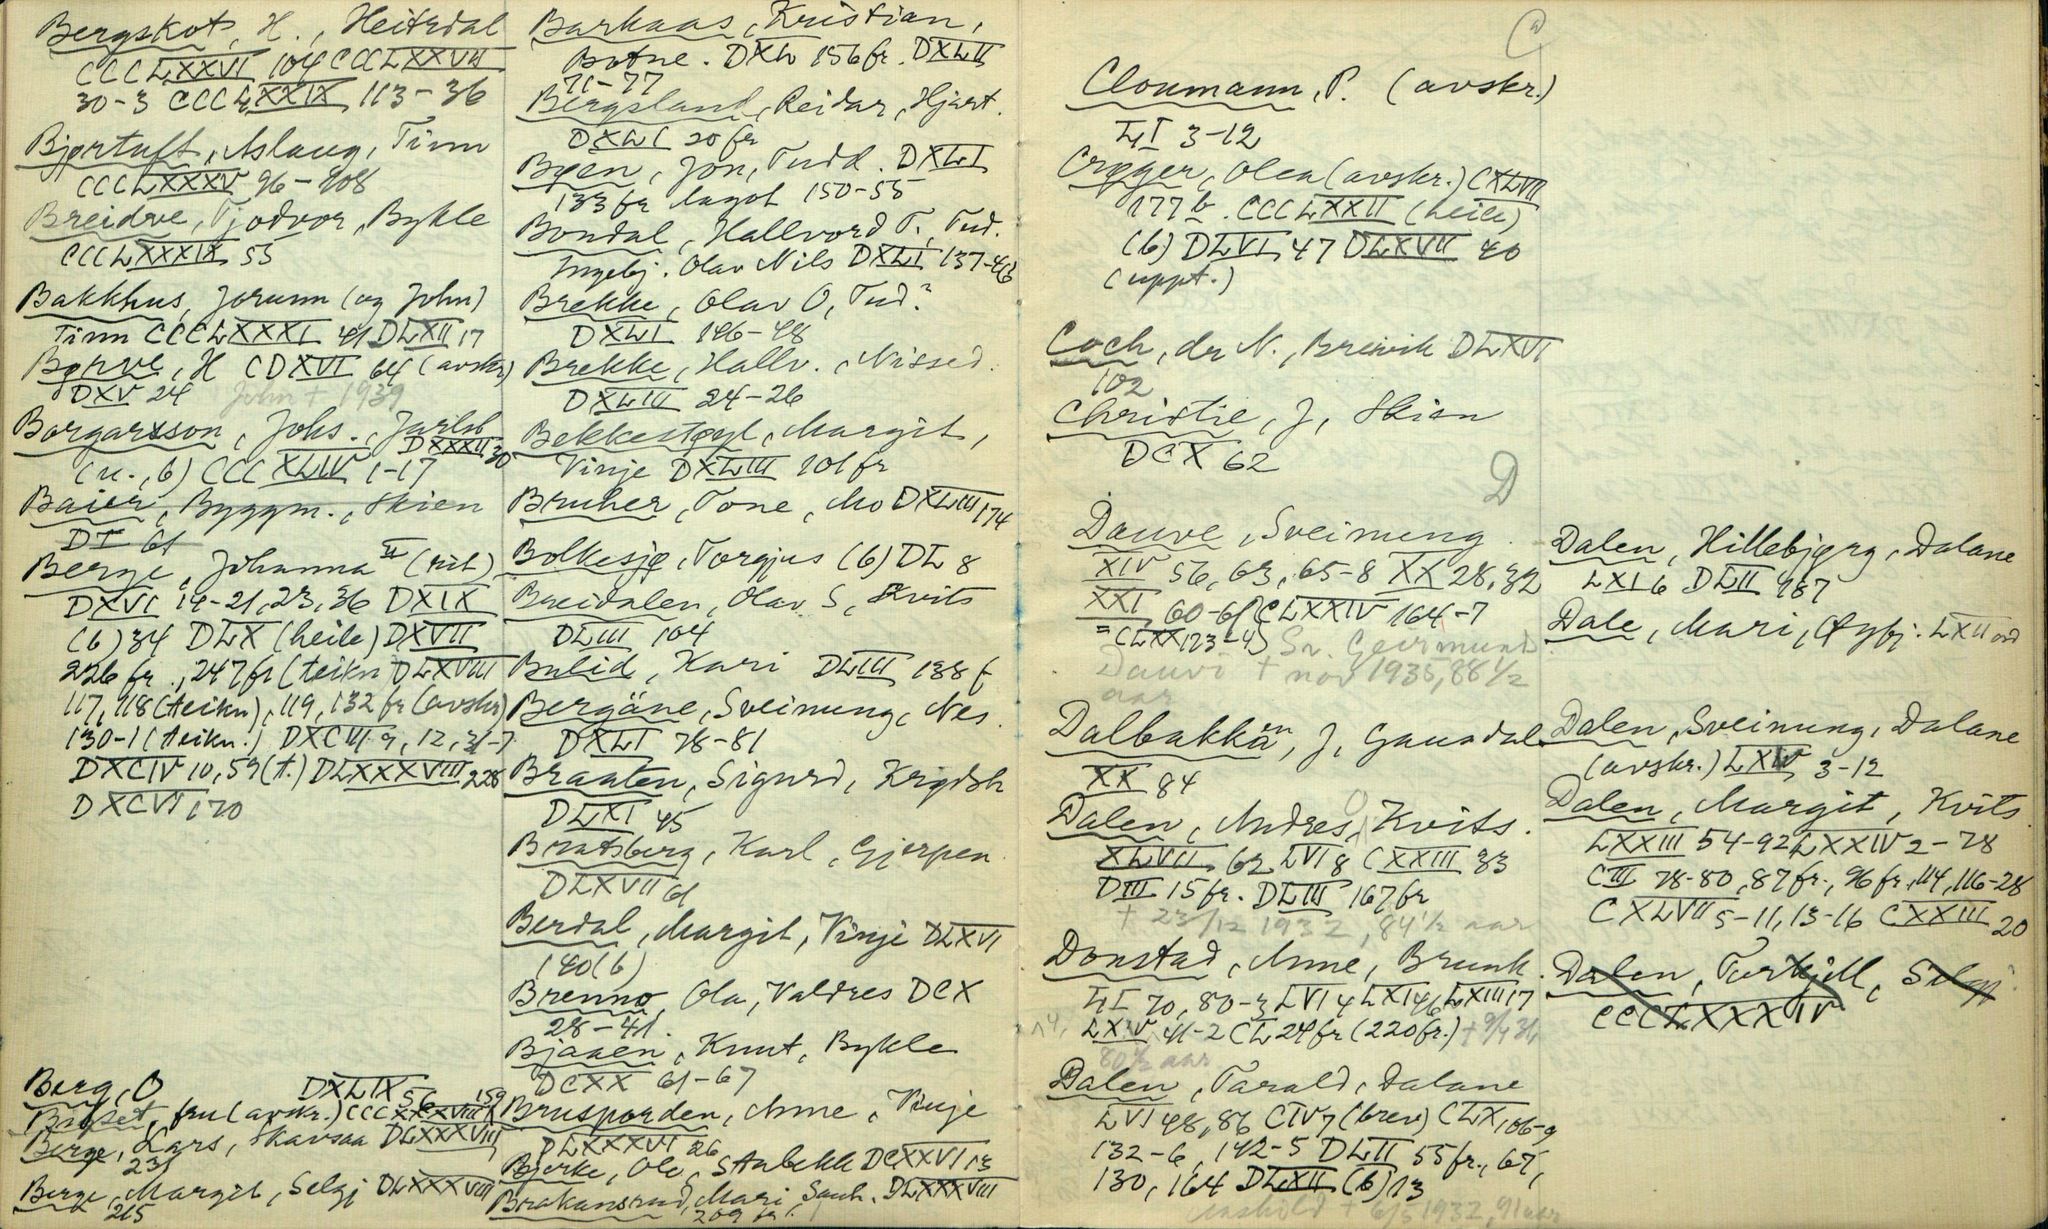 Bergskot, H., Heitrdal
CCCLXXVI 104 CCCLXXVIII
30-3 CCCLXXIX 113-36
Bjørtuft, Aslaug, Tinn
CCCLXXXV 96-108
Breidve, Tjodvor, Bykle
CCCLXXXIX 55
Bakkhus, Jorunn (og John)
Tinn CCCLXXXI 41 DLXII 17
Børve, H CDXVI 64 (avskr)
DXV 24 John + 1939
Borgarsson, Johs., Jarlsb
DXXXII 30
(u., b) CCCXLIV 1-17
Baier, Byggm., Skien
DI 61
Berge, Johanna II (rit)
DXVI 14-21, 23, 36 DXIX
(b) 34 DLX (heile) DXVII
226 fr., 247 fr (teikn DLXVIII
117, 118 (teikn), 119, 132 fr (avskr)
130-1 (teikn.) DXCVI 9, 12, 31-7
DXCIV 10, 59 (t.) DLXXXVIII 228
DXCVI 170
Berg, O DXLIX 56 159
fru (avskr.)
Berge, Lars, Skavsaa DLXXXVIII
231
Berge, Margit, Selgj DLXXXVIII
215
Barkaas, Kristian,
Botne. DXLI 156 fr. DXLII
71-77
Bergsland, Reidar, Hjart.
DXLI 20 fr
Bøen, Jon, Tudd. DXLI
133 fr laget 150-55
Bondal, Hallvord T., Tud.
Ingebj. Olav Nils DXLI 137-46
Brekke, Olav O, Tud?
DXLI 146-48
Brekke, Hallv., Nissed.
DXLIII 24-26
Bekkestøyl, Margit,
Vinje DXLIII 101 fr
Bruher, Tone, Mo DXLIII 174
Bolkesjø, Torgjus (b) DL 8
Breidalen, Olav S, Kvits
DLIII 104
Bulid, Kari DLIII 138 f
Bergåne, Sveinung, Nes.
DXLI 78-81
Braaten, Sigurd, Krødsh
DLXI 45
Bratsberg, Karl, Gjerpen
DLXVII 61
Berdal, Margit, Vinje DLXVI
140 (b)
Brenno, Ola, Valdres DCX
28-41.
Bjaaen, Knut, Bykle
DCXX 61-67
Brusporden, Anne, Vinje
DLXXXVI 26
Bjerke, Ole, Stabekk DCXXVI 13
Brakansrud, Mari, Sauh. DLXXXVIII
209 fr.
C
Cloumann, P. (avskr.)
LI 3-12
Crøger, Olea (avskr.) CXLVII
177 b. CCCLXXII (heile)
(b) DLVI 47 DLXVII 40
(uppt.)
Coch, dr N., Brevik DLXVI
102
Christie, J, Skien
DCX 62
D
Dauve, Sveinung
XIV 56, 63, 65-8 XX 28, 32
XXI 60-61 CLXXIV 164-7
=CLXX 123-4) Sv. Geirmund
Dauvi + nov 1935, 88 1/2
aar
Dalbakkän, J, Gausdal
XX 84
Dalen, Andres, Kvits.
XLVII 62 LVI 8 CXXIII 33
DIII 15 fr. DLIII 167 fr
+ 23/12 1932, 84 1/2 aar
Donstad, Anne, Brunk.
LI 70, 80-3 LVI 4 LXI 46 LXIII 17
LXIV 41-2 CL 24 fr (220 fr.) + 9/4 31,
80 1/2 aar
Dalen, Tarald, Dalane
LVI 48, 86 CIV 7 (brev) CLX 106-9
132-6, 142-5 DLII 55 fr., 67,
130, 164 DLXII (b) 13
+ 6/5 1932, 91 aar
Dalen, Hillebjørg, Dalane
LXI 6 DLII 187
Dale, Mari, Fyrj. LXII
Dalen, Sveinung, Dalane
(avskr.) LXIV 3-12
Dalen, Margit, Kvits
LXXIII 54-92 LXXIV 2-78
CIII 78-80, 87 fr., 96 fr., 114, 116-28
CXLVII 5-11, 13-16 CXXIII 20
Dalen, Torkjell, Selgj
CCCLXXXIV